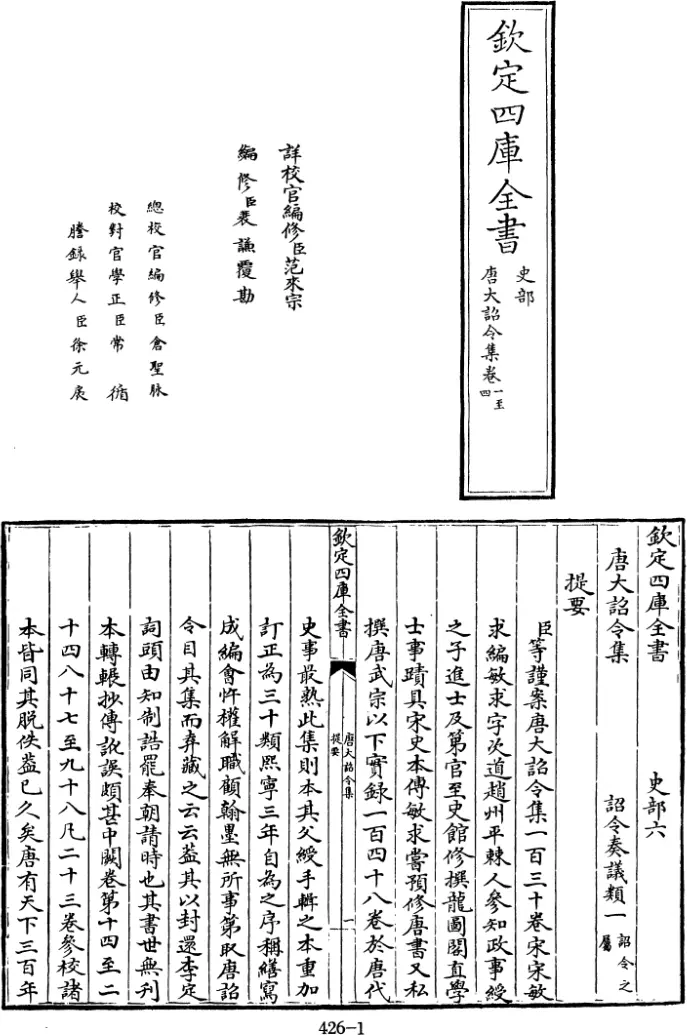 欽定四庫全書
史部
唐大詔令集卷一至四
詳校官編修臣范來宗
編修臣裴謙覆勘
總校官編修臣倉聖脉
校對官學正臣常循
謄録舉人臣徐元扆
欽定四庫全書 史部六
唐大詔令集 詔令奏議類一詔令之屬
提要
臣等謹案唐大詔令集一百三十卷宋宋敏
求編敏求字次道趙州平棘人參知政事綬
之子進士及第官至史館修撰龍圖閣直學
士事蹟具宋史本傳敏求嘗預修唐書又私
撰唐武宗以下實録一百四十八卷於唐代
欽定四庫全書 唐大詔令集 提要 一
史事最熟此集則本其父綬手輯之本重加
訂正為三十類熙寧三年自為之序稱繕寫
成編會忤權解職顧翰墨無所事第取唐詔
令目其集而弆藏之云云葢其以封還李定
詞頭由知制誥罷奉朝請時也其書世無刊
本轉輾抄傳訛誤頗甚中闕卷第十四至二
十四八十七至九十八凡二十三卷參校諸
本皆同其脱佚葢已久矣唐有天下三百年
426-1